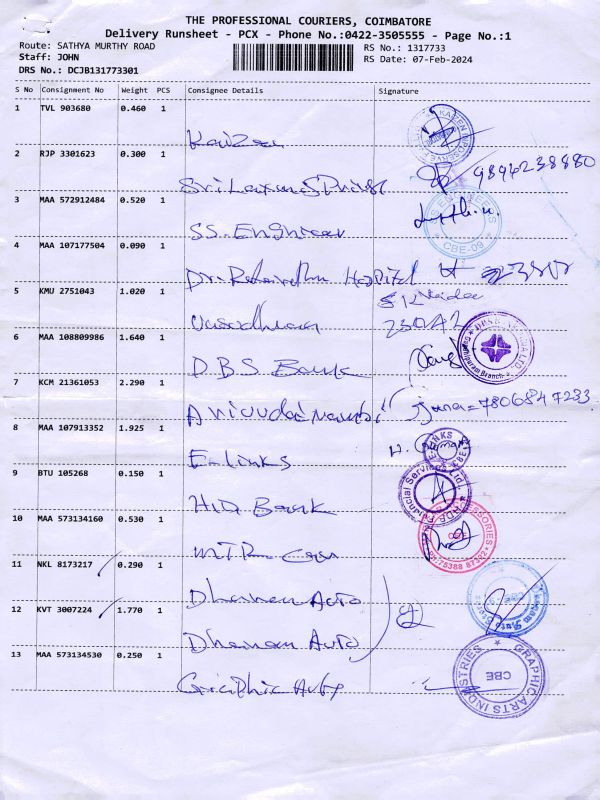 THE PROFESSIONAL COURIERS, COIMBATORE
Delivery Runsheet - PCX - Phone No.:0422-3505555 - Page No.:1
Route: SATHYA MURTHY ROAD RS No.: 1317733
Staff: JOHN RS Date: 07-Feb-2024
DRS No.: DCJB131773301
S No Consignment No Weight PCS Consignee Details Signature
1 TVL 903680 0.460 1
Kaizen
2 RJP 3301623 0.300 1
Sri Laxmi 9894238880
3 MAA 572912484 0.520 1
SS. Engineer CBE-09
4 MAA 107177504 0.090 1
Dr. Hospital
5 KMU 2751043 1.020 1
23042
6 MAA 108809986 1.640 1
D.B.S. Bank
7 KCM 21361053 2.290 1
7806847233
8 MAA 107913352 1.925 1
E-links
9 BTU 105268 0.150 1
Bank Financial Services Ltd.
10 MAA 573134160 0.530 1
MTR
11 NKL 8173217 0.290 1
Dhanam Auto
12 KVT 3007224 1.770 1
Dhanam Auto
13 MAA 573134530 0.250 1
Graphic Arts GRAPHIC ARTS INDUSTRIES CBE